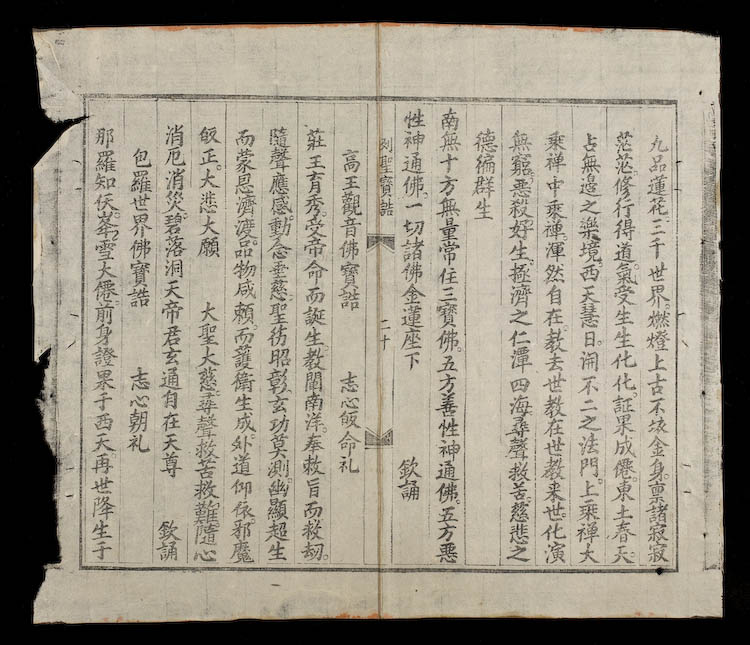 九品蓮花三千世界。燃燈上古不垓金身。禀諸寂寂
茫茫。修行得道。氣受生生化化。証果成僊。東土春天。
占無邊之樂境。西天慧日。開不二之法門。上乘禅大
乘禅中乘禅。渾然自在。教去世教在世教来世。化演
無窮。惡殺好生。拯濟之仁潭四海尋聲救苦。慈悲之
德徧群生
南無十方無量常住三寶佛。五方善性神通佛。五方惡
性神通佛。一切諸佛金蓮座下　欽誦
列聖寶誥　二十
高王觀音佛寶誥　志心皈命礼
莊王育秀。受帝命而誕生教闡南洋。奉敕旨而救刼。
隨聲應感。動念垂慈。聖彷昭彰玄功莫測。幽顯超生
而蒙恩濟渡。品物咸賴。而護衛生成。外道仰依。邪魔
皈正。大悲大願　大聖大慈。尋聲救苦救難隨心
消厄消災。碧落洞天帝君玄通自在天尊　欽誦
包羅世界佛寶誥　志心朝礼
那羅知伕。峯雪大僊。前身證果于西天。再世降生于